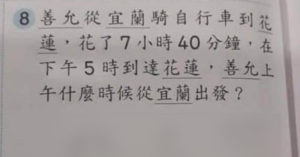 8 善允從宜蘭騎自行車到花
蓮，花了7小時40分鐘，在
下午5時到達花蓮，善允上
午什麼時候從宜蘭出發？